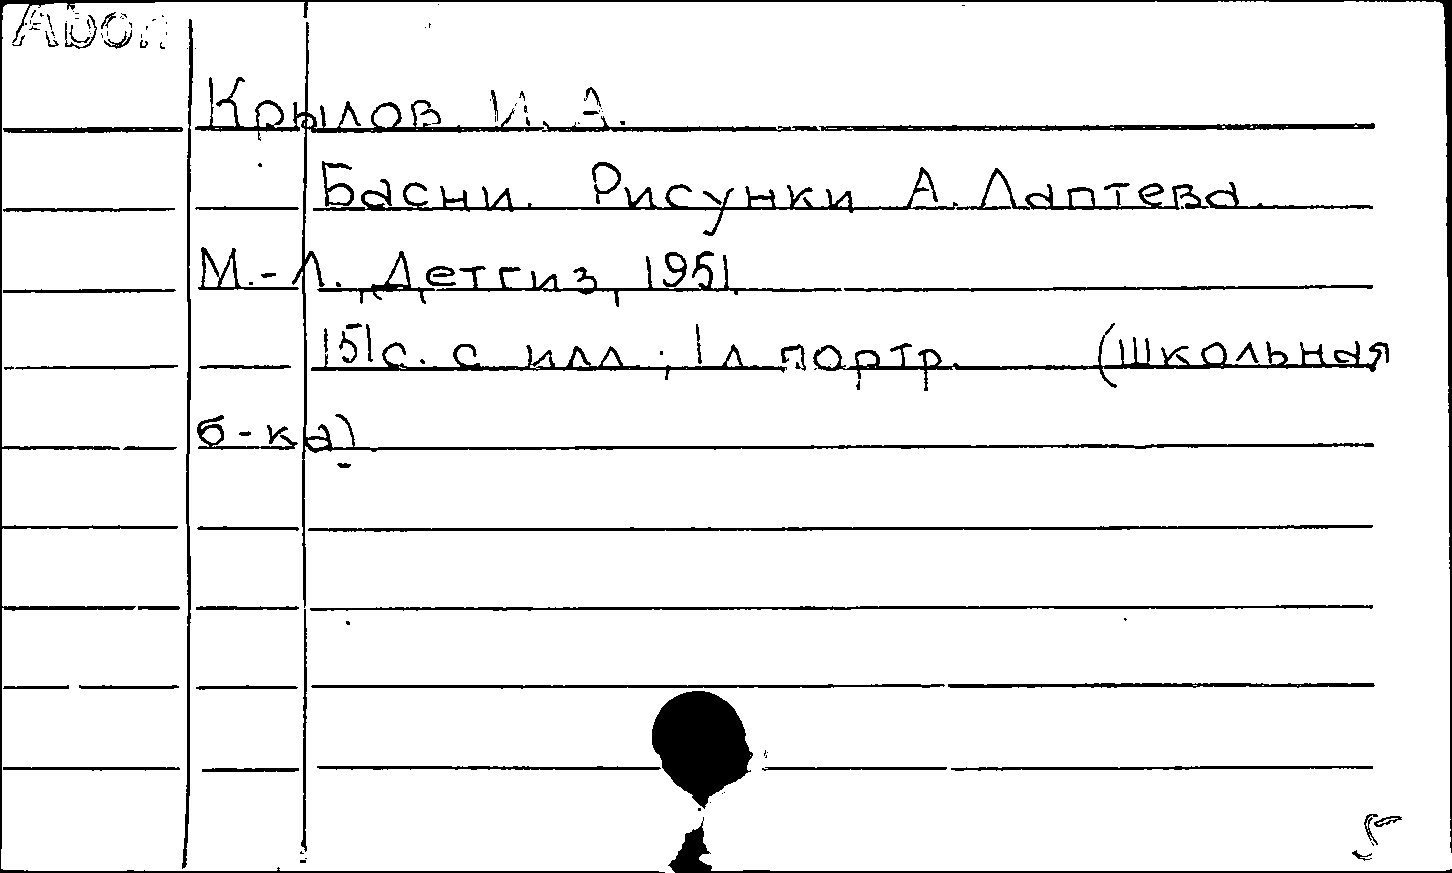 Abon
Крылов И. А.
Басни. Рисунки А. Лаптева.
М.-Л., Детгиз, 1951.
151с. с илл.; 1л. портр. (школьная
б-ка).
5